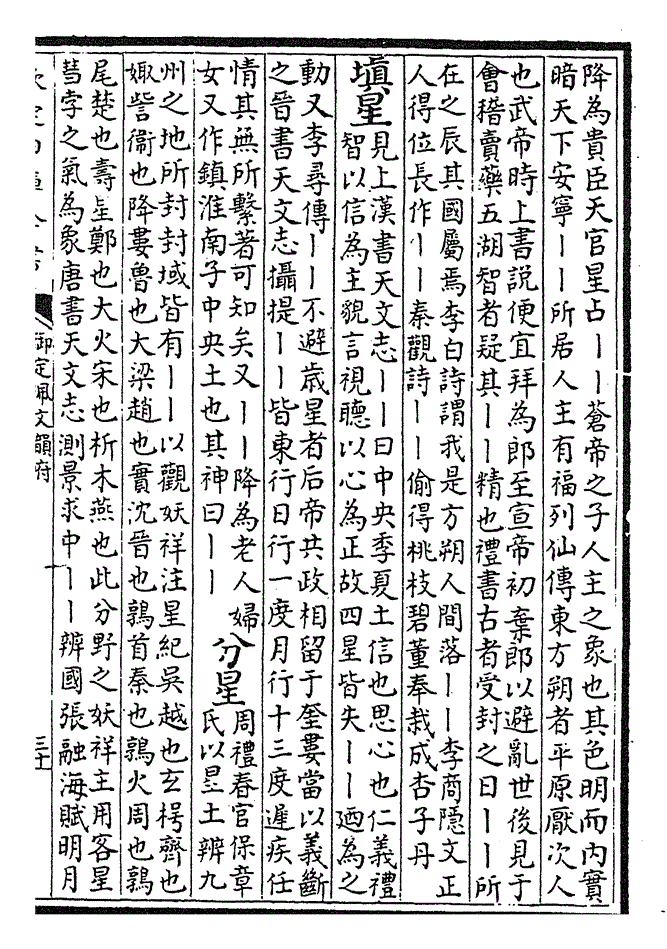 降為貴臣天官星占丨丨蒼帝之子人主之象也其色明而内實
暗天下安寧丨丨所居人主有福列仙傳東方朔者平原厭次人
也武帝時上書說便宜拜為郎至宣帝初棄郎以避亂世後見于
會稽賣藥五湖智者疑其丨丨精也禮書古者受封之日丨丨所
在之辰其國屬焉李白詩謂我是方朔人間落丨丨李商隱文正
人得位長作丨丨秦觀詩丨丨偷得桃枝碧董奉栽成杏子丹
填星見上漢書天文志丨丨曰中央季夏土信也思心也仁義禮
智以信為主貌言視聽以心為正故四星皆失丨丨廼為之
動又李尋傳丨丨不避歲星者后帝共政相留于奎婁當以義斷
之晉書天文志攝提丨丨皆東行日行一度月行十三度遲疾任
情其無所繫著可知矣又丨丨降為老人婦
女又作鎮淮南子中央土也其神曰丨丨
分星周禮春官保章
氏以星土辨九
州之地所封封域皆有丨丨以觀妖祥注星紀吳越也玄枵齊也
娵訾衞也降婁魯也大梁趙也實沈晉也鶉首秦也鶉火周也鶉
尾楚也壽星鄭也大火宋也析木燕也此分野之妖祥主用客星
彗孛之氣為象唐書天文志測景求中丨丨辨國張融海賦明月
御定佩文韻府
三十